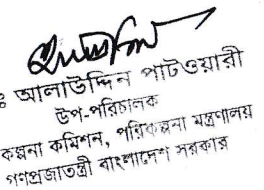 ঃ আলাউদ্দিন পাটওয়ারী
উপ-পরিচালক
কল্পনা কমিশন, পরিকল্পনা মন্ত্রণালয়
গণপ্রজাতন্ত্রী বাংলাদেশ সরকার